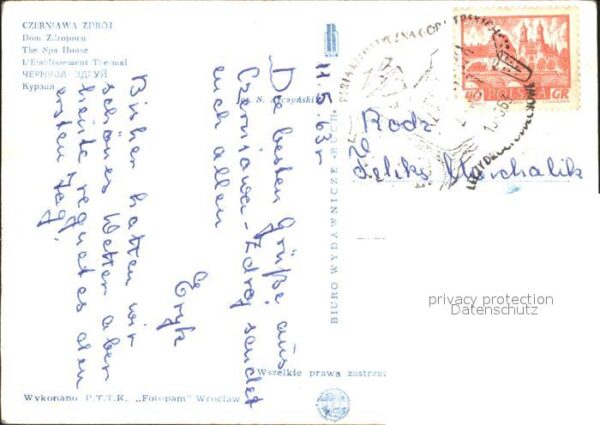 CZERNIAWA ZDRÓJ
Dom Zdrojowy
The Spa House
L'Etablissement Thermal
ЧЕРНЯВА-ЗДРУЙ
Курзал
11.5.63r
Die besten Grüße aus
Czerniawa-Zdrój sendet
euch allen
Eryk
Bisher hatten wir
schönes Wetter aber
heute regnet es den
ersten Tag.
BIURO WYDAWNICZE „RUCH"
40 POLSKA GR
Rodz.
Marchalik
privacy protection
Datenschutz
Wszelkie prawa zastrze
Wykonano P.T.T.K. „Fotopam" Wrocław